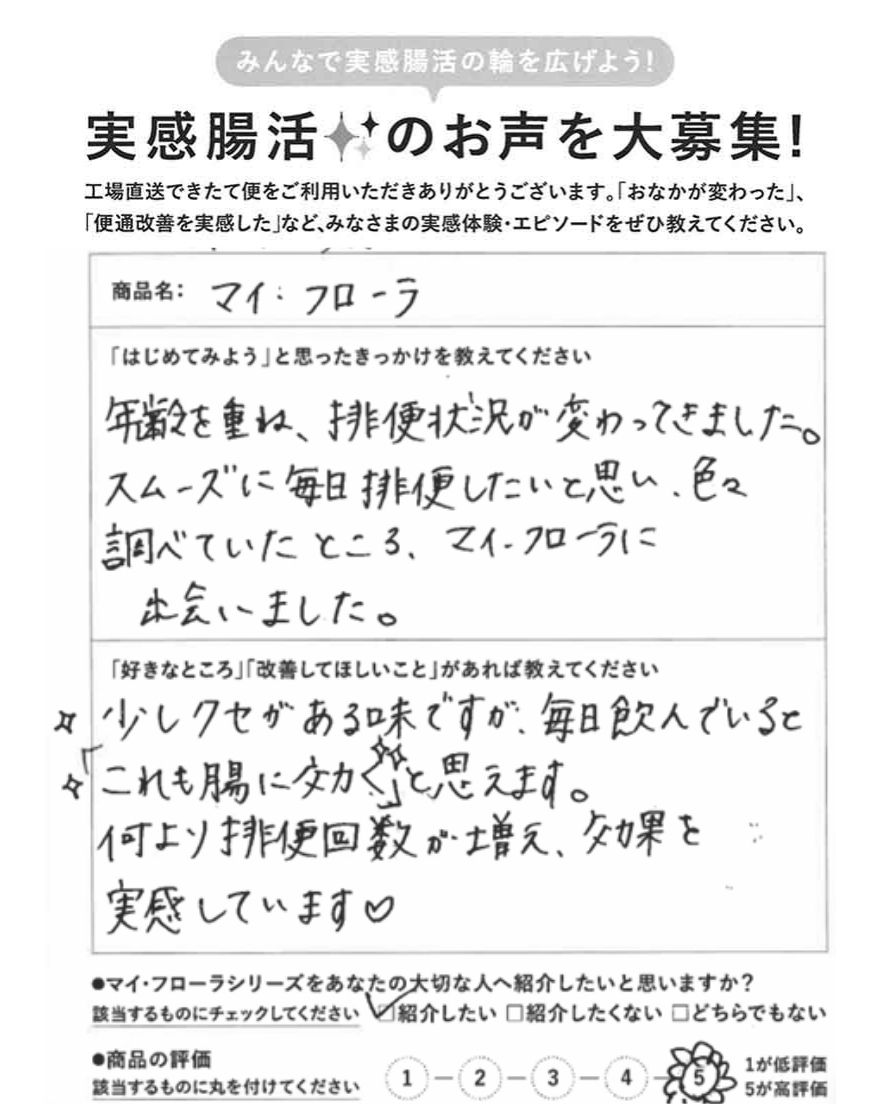 みんなで実感腸活の輪を広げよう!
実感腸活のお声を大募集!
工場直送できたて便をご利用いただきありがとうございます。「おなかが変わった」、
「便通改善を実感した」など、みなさまの実感体験・エピソードをぜひ教えてください。
商品名: マイ・フローラ
「はじめてみよう」と思ったきっかけを教えてください
年齢を重ね、排便状況が変わってきました。
スムーズに毎日排便したいと思い、色々
調べていたところ、マイ・フローラに
出会いました。
「好きなところ」「改善してほしいこと」があれば教えてください
少しクセがある味ですが、毎日飲んでいると
「これも腸に効く」と思えます。
何より排便回数が増え、効果を
実感しています♡
●マイ・フローラシリーズをあなたの大切な人へ紹介したいと思いますか?
該当するものにチェックしてください ☑紹介したい □紹介したくない □どちらでもない
●商品の評価
該当するものに丸を付けてください
1 - 2 - 3 - 4 - 5
1が低評価
5が高評価